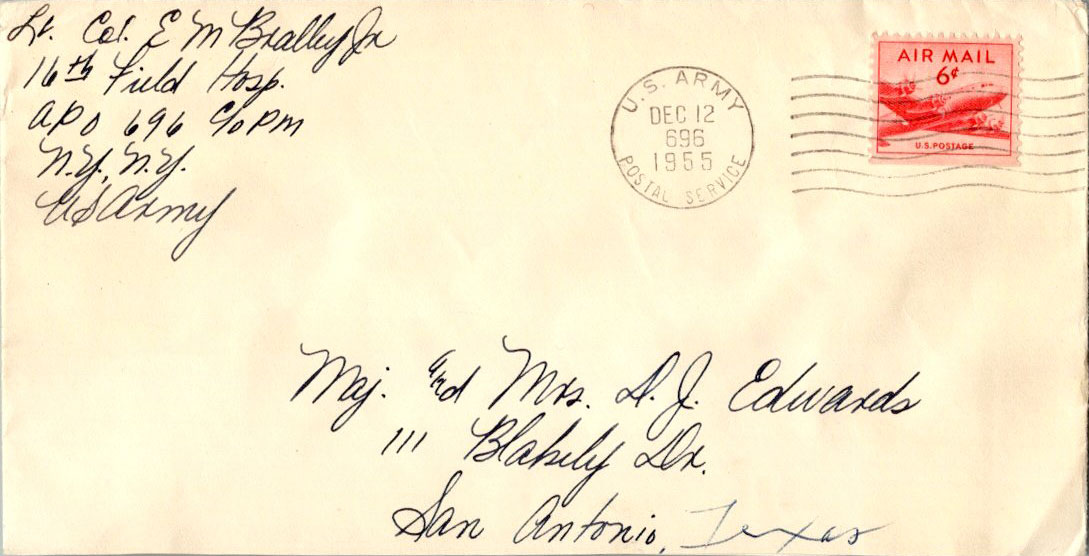 Lt. Col. E M Bralley Jr
16th Field Hosp.
APO 696 c/o PM
N.Y., N.Y.
US Army
U.S. ARMY
DEC 12
696
1955
POSTAL SERVICE
AIR MAIL
6¢
U.S. POSTAGE
Maj. and Mrs. D. J. Edwards
111 Blakely Dr.
San Antonio, Texas